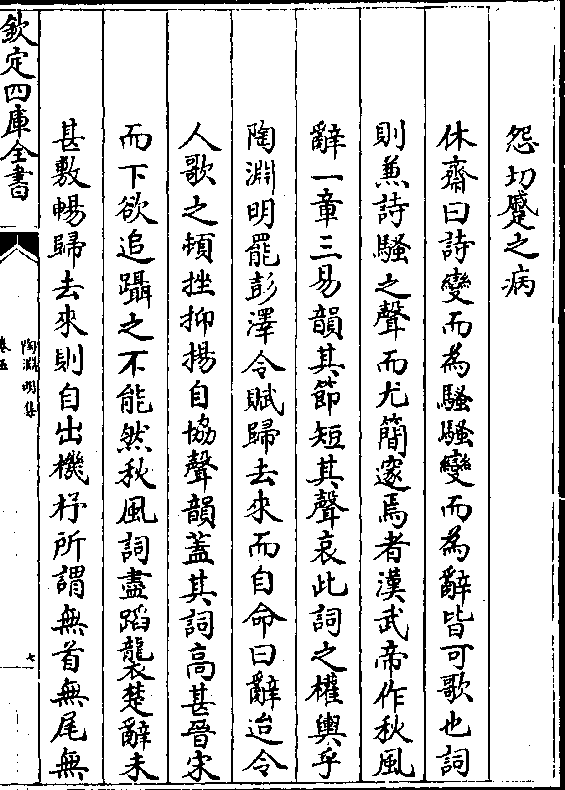 怨切蹙之病
休齋曰詩變而為騷騷變而為辭皆可歌也詞
則兼詩騷之聲而尤簡邃焉者漢武帝作秋風
辭一章三易韻其節短其聲哀此詞之權輿乎
陶淵明罷彭澤令賦歸去來而自命曰辭迨令
人歌之頓挫抑揚自協聲韻蓋其詞高甚晉宋
而下欲追躡之不能然秋風詞盡蹈襲楚辭未
甚敷暢歸去來則自出機杼所謂無首無尾無
欽定四庫全書
陶淵明集
卷五
七